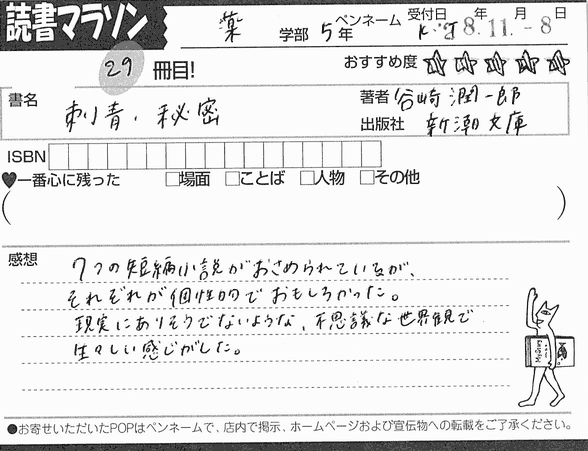 読書マラソン
薬 学部 5年 ペンネーム K.T 受付日 年 月 日
8.11.-8
29 冊目! おすすめ度 ☆☆☆☆☆
書名 刺青・秘密
著者 谷崎潤一郎
出版社 新潮文庫
ISBN
♥一番心に残った □場面 □ことば □人物 □その他
( )
感想
7つの短編小説がおさめられているが、
それぞれが個性的でおもしろかった。
現実にありそうでないような、不思議な世界観で
生々しい感じがした。
●お寄せいただいたPOPはペンネームで、店内で掲示、ホームページおよび宣伝物への転載をご了承ください。